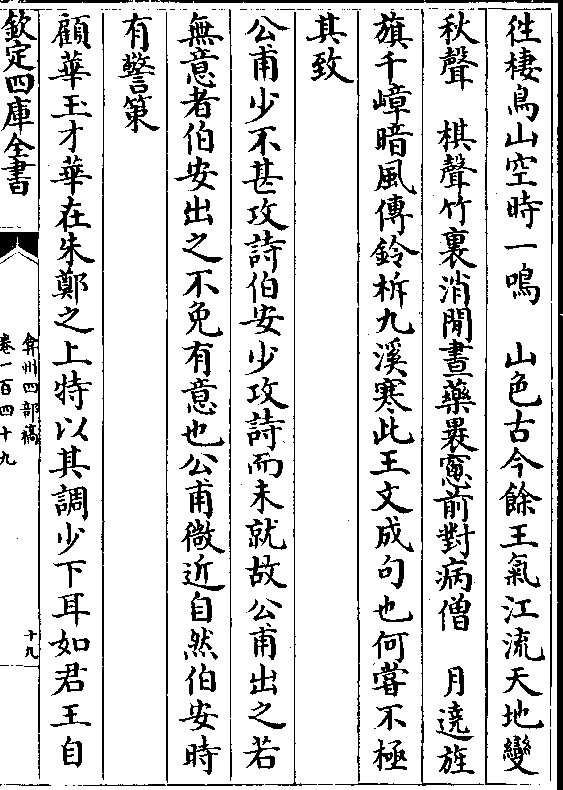 徃棲鳥山空時一鳴　山色古今餘王氣江流天地變
秋聲　棋聲竹裏消閒晝藥裹窻前對病僧　月遶旌
旗千嶂暗風傳鈴柝九溪寒此王文成句也何嘗不極
其致
公甫少不甚攻詩伯安少攻詩而未就故公甫出之若
無意者伯安出之不免有意也公甫微近自然伯安時
有警策
顧華玉才華在朱鄭之上特以其調少下耳如君王自
欽定四庫全書
弇州四部稿
卷一百四十九
十九